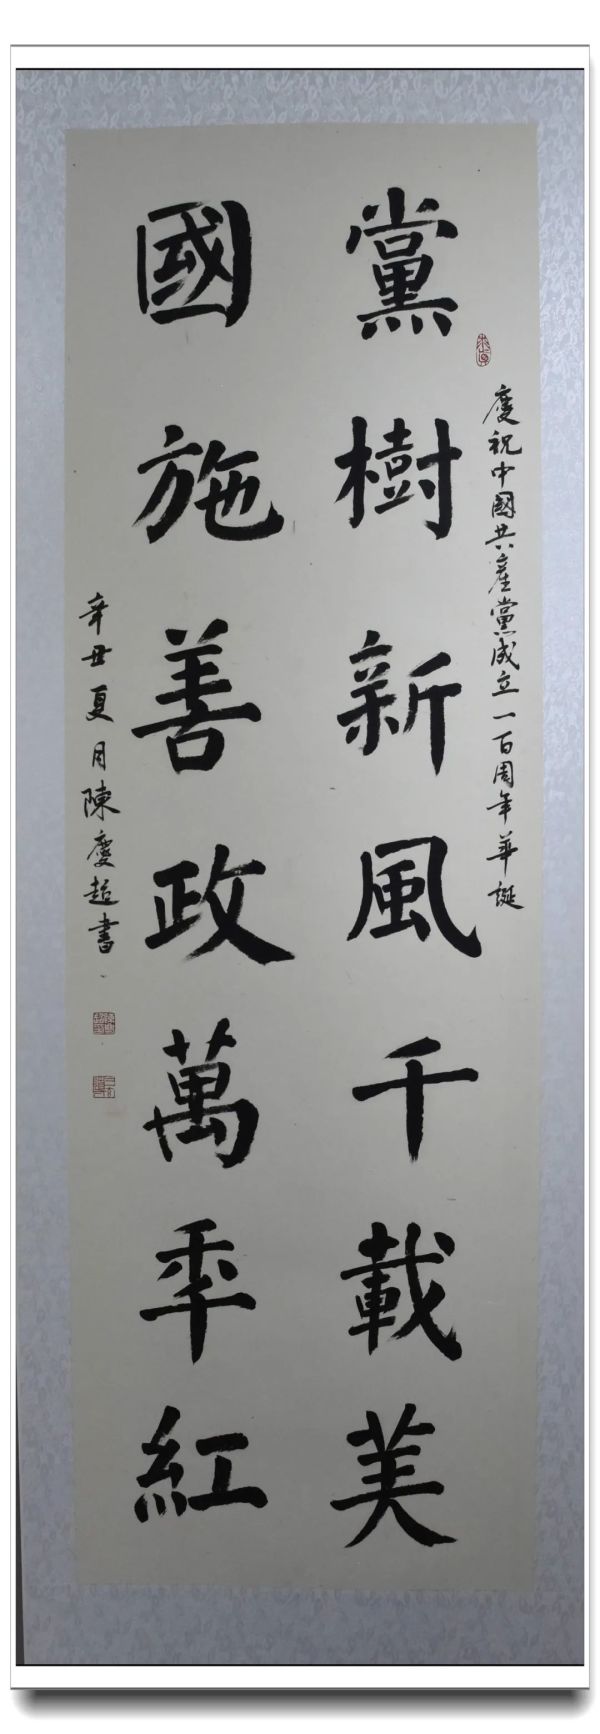 慶祝中國共產黨成立一百周年華誕
黨樹新風千載美
國施善政萬年紅
辛丑夏月陳慶超書